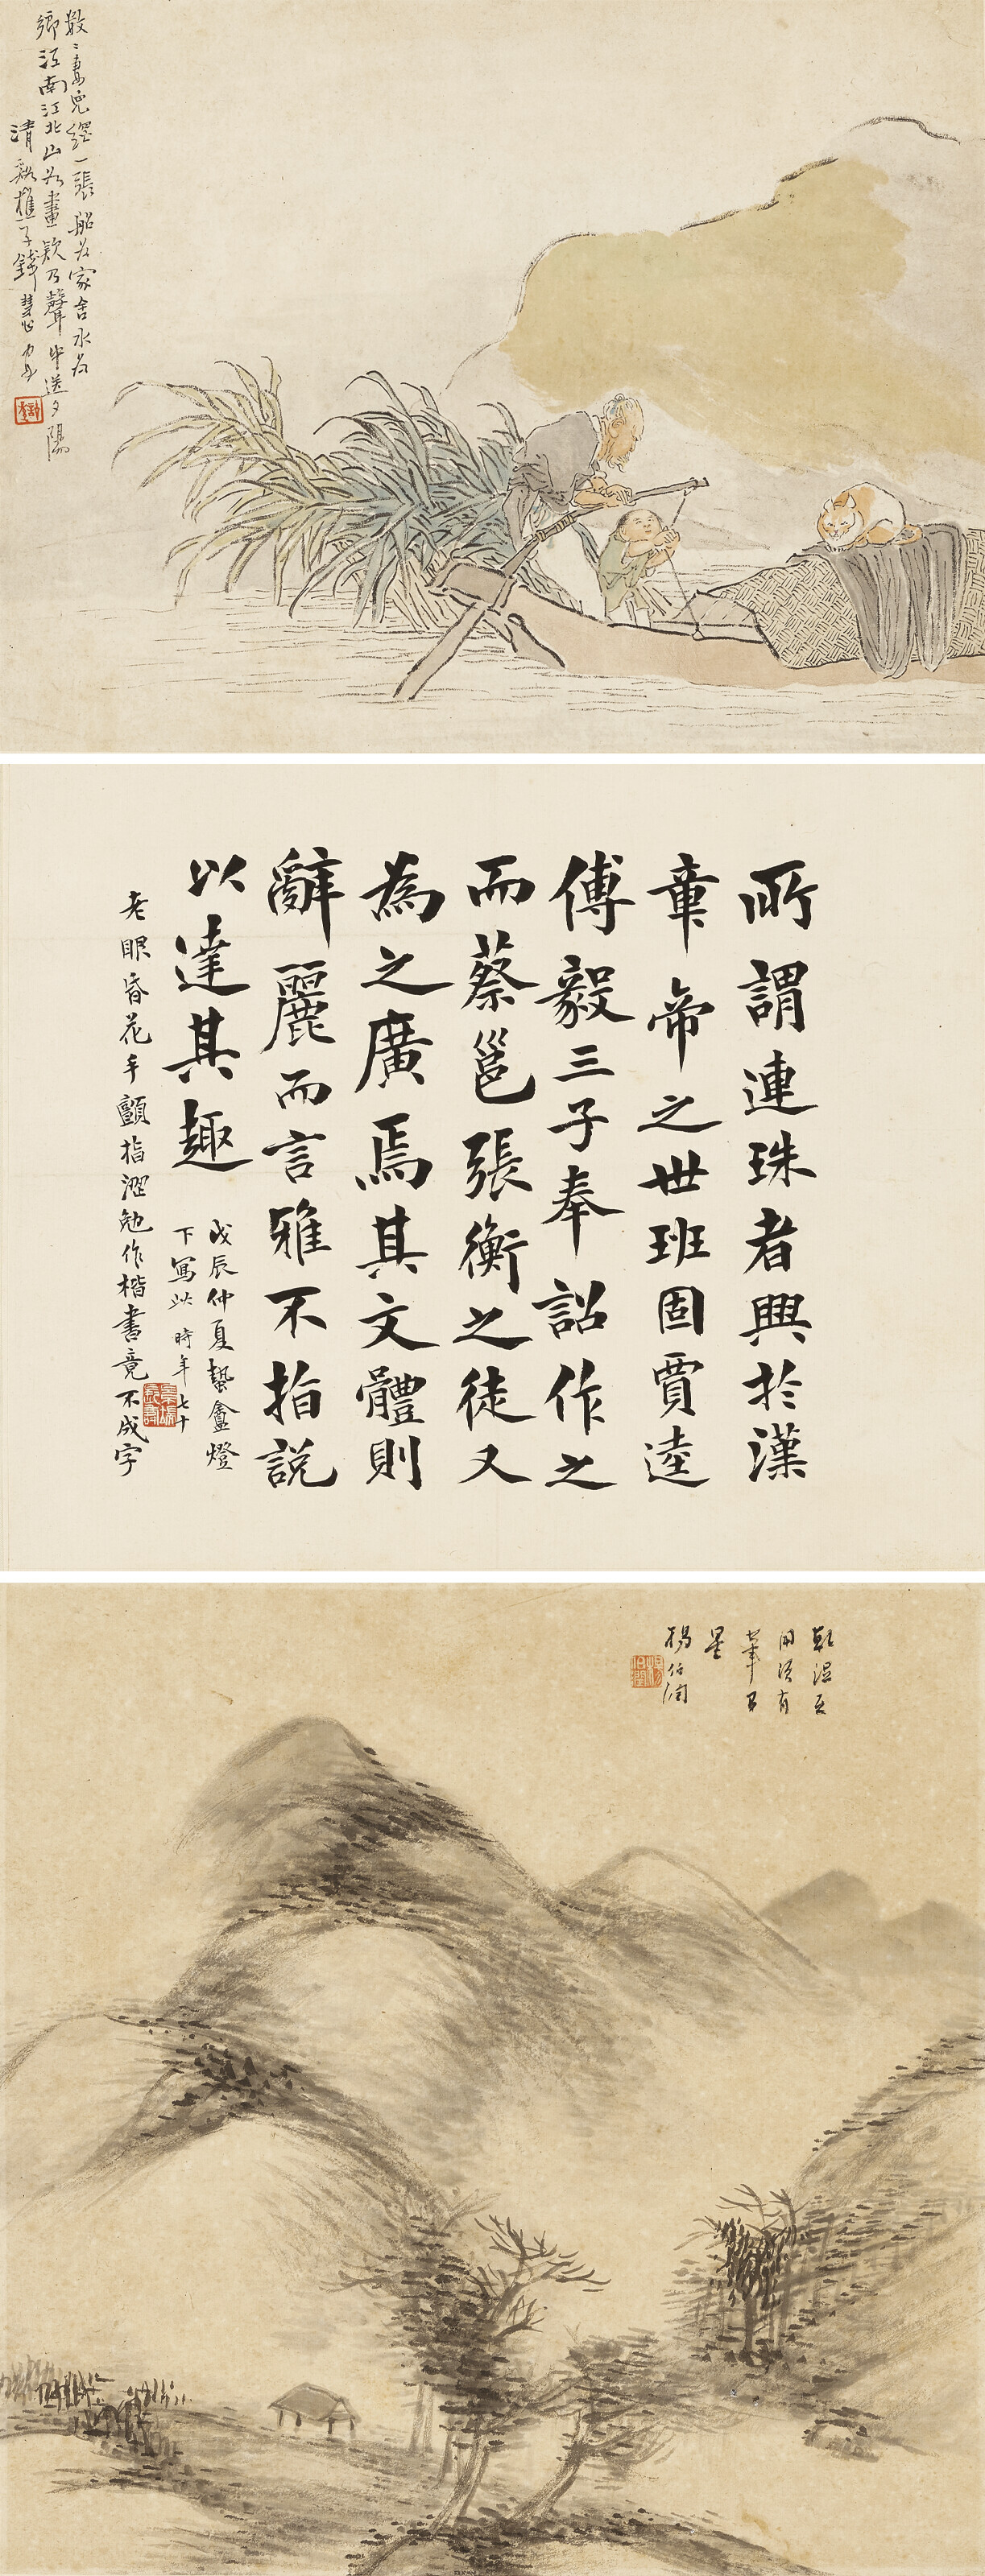 數〻妻兒纆一張船為家舍水為
鄉江南江北山如畫欸乃聲中送夕陽
清谿樵子錢慧安
所謂連珠者興於漢
章帝之世班固賈逵
傅毅三子奉詔作之
而蔡邕張衡之徒又
為之廣焉其文體則
辭麗而言雅不指說
以達其趣
戊辰仲夏蟄盦燈
下寫此時年七十
老眼昏花手顫指澀勉作楷書竟不成字
乾濕互
用須有
筆有
墨
楊伯潤